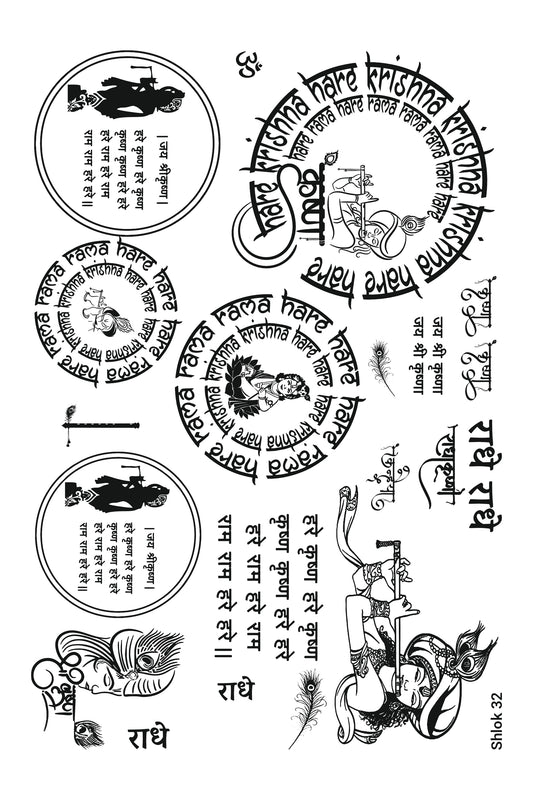 ॐ
hare krishna hare krishna krishna krishna hare hare
hare rama hare rama rama rama hare hare
कृष्ण
| जय श्रीकृष्ण |
हरे कृष्ण हरे कृष्ण
कृष्ण कृष्ण हरे हरे
हरे राम हरे राम
राम राम हरे हरे ||
hare rama hare rama rama rama hare hare
hare krishna hare krishna krishna krishna hare hare
hare rama hare rama rama rama hare hare
hare krishna hare krishna krishna krishna hare hare
जय श्री कृष्ण
जय श्री कृष्ण
राधे राधे
राधाकृष्ण
| जय श्रीकृष्ण |
हरे कृष्ण हरे कृष्ण
कृष्ण कृष्ण हरे हरे
हरे राम हरे राम
राम राम हरे हरे ||
हरे कृष्ण हरे कृष्ण
कृष्ण कृष्ण हरे हरे
हरे राम हरे राम
राम राम हरे हरे ||
राधे
राधे
Shlok 32